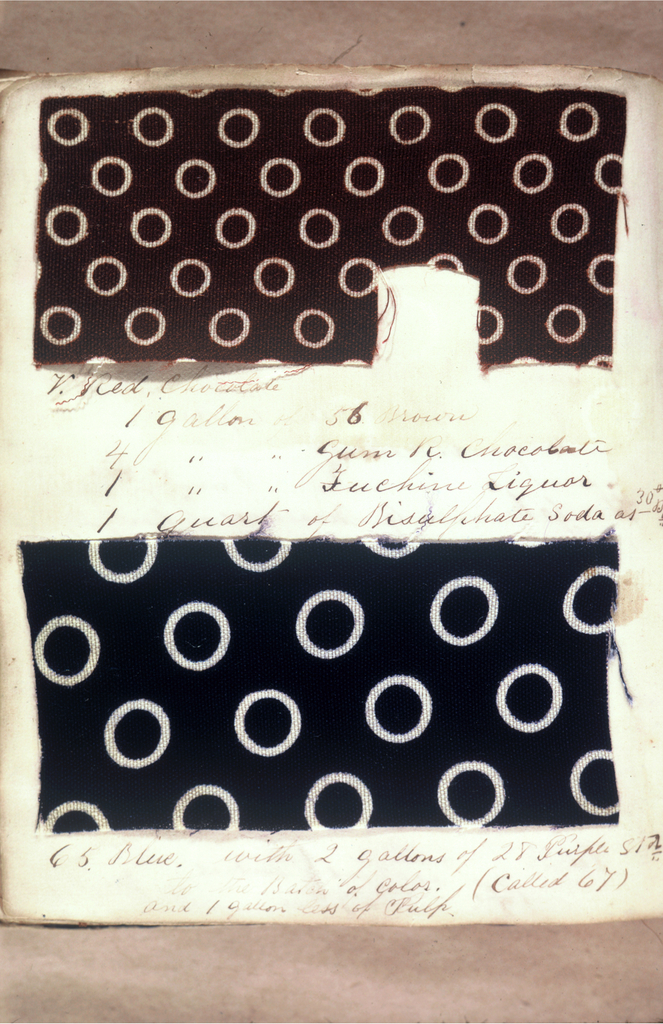 V. Red, Chocolate
1 gallon of 56 Brown
4 " " Gum R. Chocolate
1 " " Fuchine Liquor
1 quart of Bisulphate Soda as 30°
65 Blue. with 2 gallons of 28 Purple
to the Batch of color. (Called 67)
and 1 gallon less of Pulp.